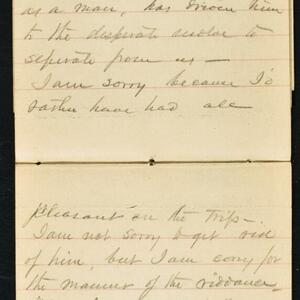 as a man, has driven him
to the desperate
to seperate from us —
I am sorry because I'd
rather have had all
pleasant on the trip —
I am not sorry to get rid
of him, but I am sorry for
the manner of the riddance